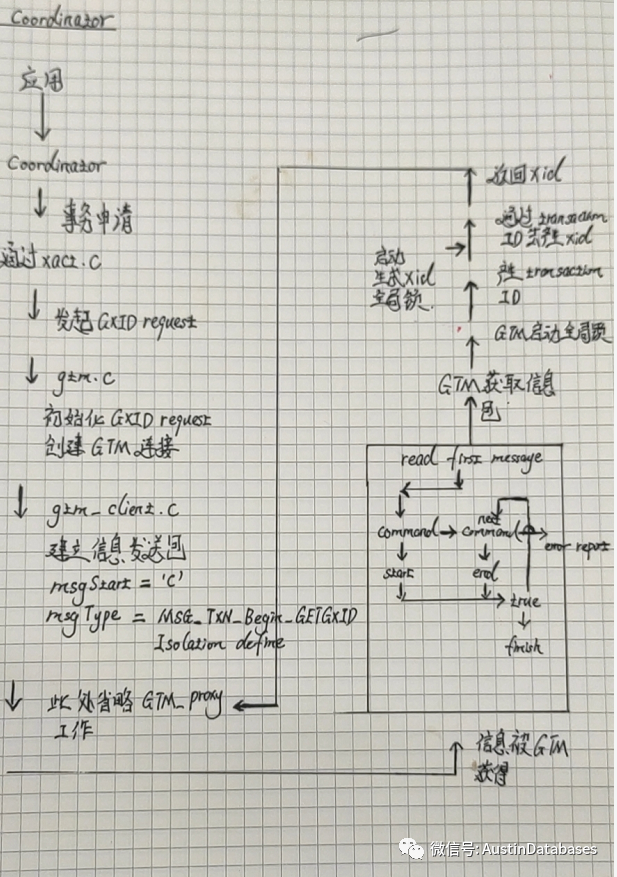 Coordinator
应用
Coordinator
事务申请
通过xact.c
发起GXID request
gtm.c
初始化GXID request
创建GTM连接
gtm_client.c
建立信息发送包
msgStart = 'C'
msgType = MSG_TXN_Begin_GETGXID
Isolation define
此处省略GTM_proxy
工作
返回xid
通过transaction
ID去产生xid
启动
生成xid
全局锁
产transaction
ID
GTM启动全局锁
GTM获取信息
包
read first message
command
next
command
error report
start
end
true
finish
信息被GTM
获得
微信号:AustinDatabases